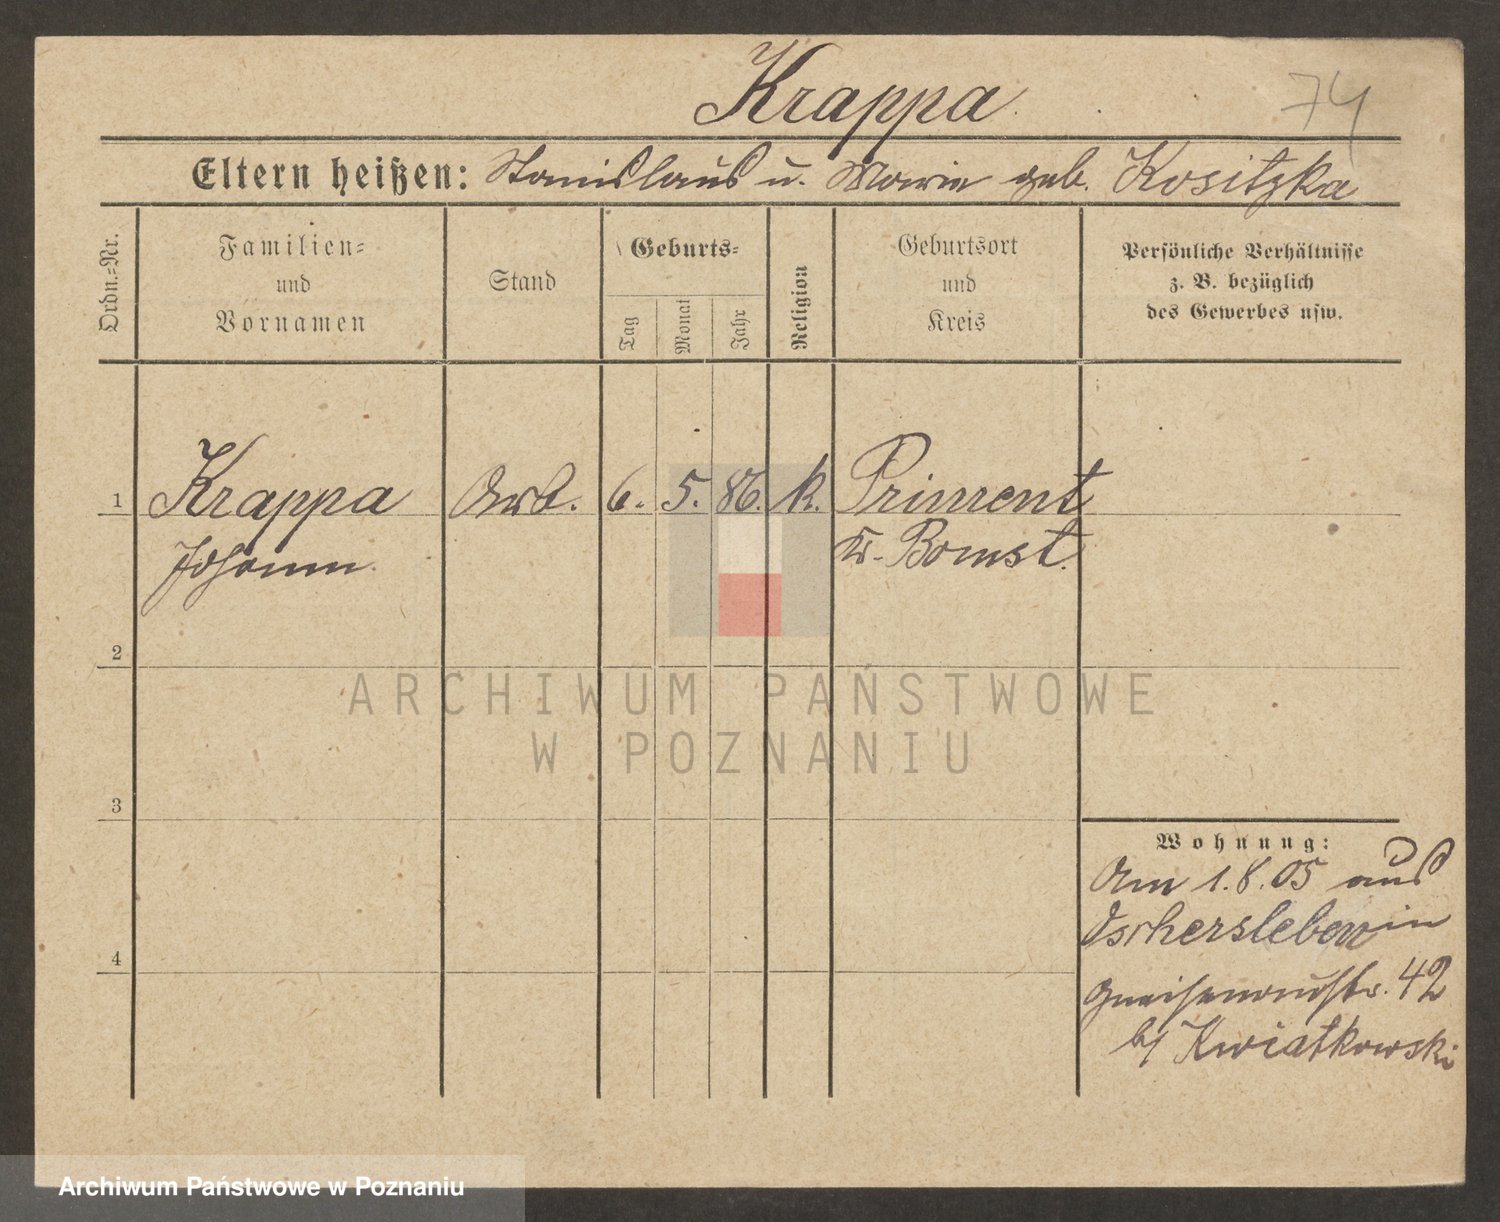 Krappa
74
Eltern heißen: Stanislaus u. Marie geb. Kositzka
Ordn.=Nr.
Familien=
und
Vornamen
Stand
Geburts=
Tag
Monat
Jahr
Religion
Geburtsort
und
Kreis
Persönliche Verhältnisse
z. B. bezüglich
des Gewerbes usw.
1 Krappa Arb. 6. 5. 86. k. Priment
Johann Kr. Bomst.
2
3
4
Wohnung:
Am 1.8.05 aus
Oschersleben in
Gneisenaustr. 42
b/ Kwiatkowski
ARCHIWUM PAŃSTWOWE
W POZNANIU
Archiwum Państwowe w Poznaniu